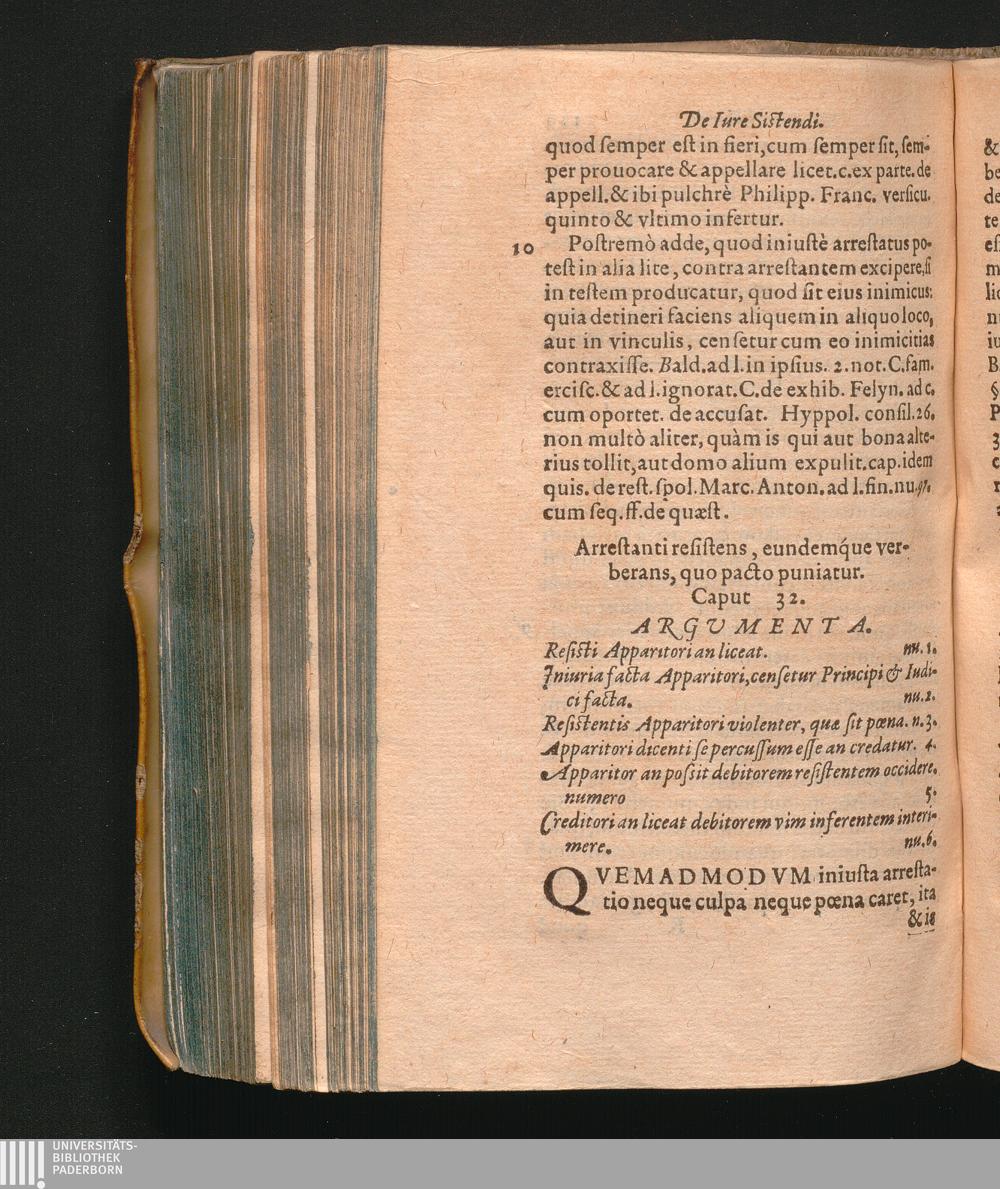 De Iure Sistendi.
quod semper est in fieri, cum semper sit, sem-
per prouocare & appellare licet. c. ex parte. de
appell. & ibi pulchrè Philipp. Franc. versicu.
quinto & vltimo infertur.
10 Postremò adde, quod iniustè arrestatus po-
test in alia lite, contra arrestantem excipere, si
in testem producatur, quod sit eius inimicus:
quia detineri faciens aliquem in aliquo loco,
aut in vinculis, censetur cum eo inimicitias
contraxisse. Bald. ad l. in ipsius. 2. not. C. fam.
ercisc. & ad l. ignorat. C. de exhib. Felyn. ad c.
cum oportet. de accusat. Hyppol. consil. 26.
non multò aliter, quàm is qui aut bona alte-
rius tollit, aut domo alium expulit. cap. idem
quis. de rest. spol. Marc. Anton. ad l. fin. nu. 97.
cum seq. ff. de quæst.
Arrestanti resistens, eundemq́ue ver-
berans, quo pacto puniatur.
Caput 32.
ARGVMENTA.
Resisti Apparitori an liceat. nu. 1.
Iniuria facta Apparitori, censetur Principi & Iudi-
ci facta. nu. 2.
Resistentis Apparitori violenter, quæ sit pœna. n. 3.
Apparitori dicenti se percussum esse an credatur. 4.
Apparitor an possit debitorem resistentem occidere.
numero 5.
Creditori an liceat debitorem vim inferentem interi-
mere. nu. 6.
QVEMADMODVM iniusta arresta-
tio neque culpa neque pœna caret, ita
& is
&
be
de
te
m
n
iu
B.
§
P
3
c
UNIVERSITÄTS-
BIBLIOTHEK
PADERBORN